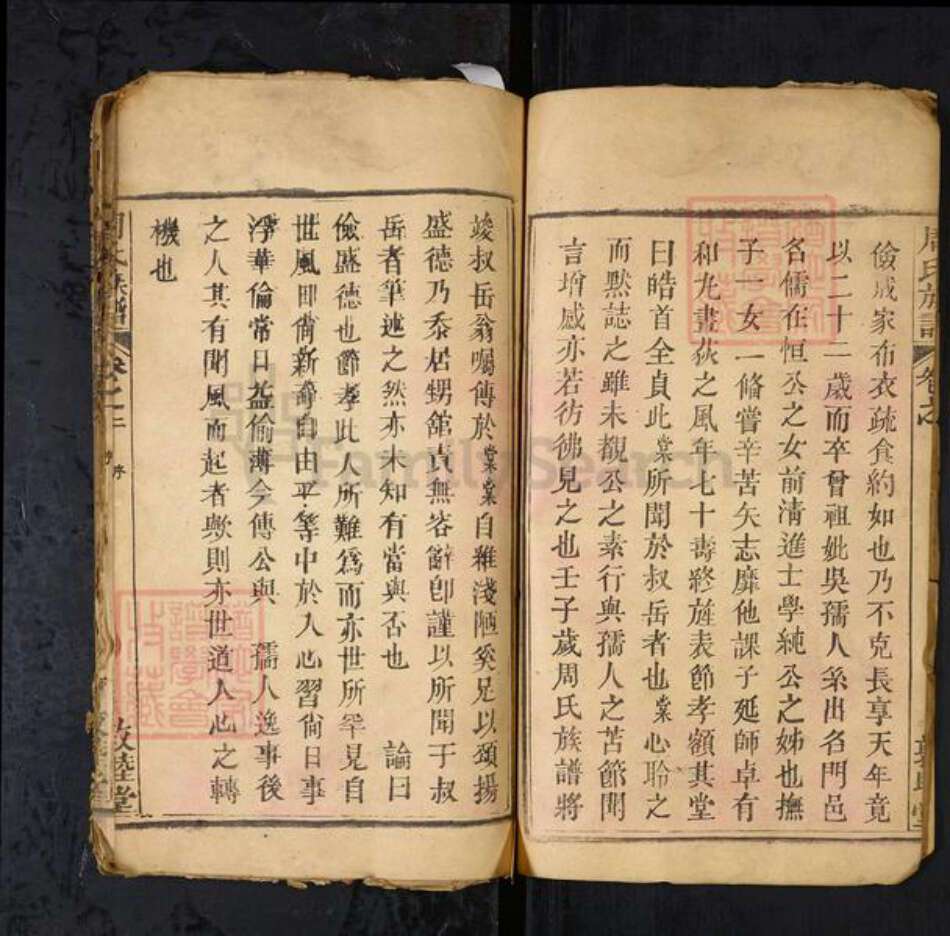 周氏族譜 卷之
敦睦堂
儉成家布衣疏食約如也乃不克長享天年竟
以二十二歲而卒曾祖妣吳孺人系出名門邑
名儒在恒公之女前清進士學純公之姊也撫
子一女一備嘗辛苦矢志靡他課子延師卓有
和丸畫荻之風年七十壽終旌表節孝額其堂
曰皓首全貞此棠所聞於叔岳者也棠心聆之
而默誌之雖未覩公之素行與孺人之苦節聞
言增感亦若彷彿見之也壬子歲周氏族譜將
竣叔岳翁囑傳於棠棠自維淺陋奚足以頌揚
盛德乃忝居甥舘責無容辭卽謹以所聞于叔
岳者筆述之然亦未知有當與否也 論曰
儉盛德也節孝此人所難爲而亦世所罕見自
世風日尙新奇自由平等中於人心習尙日事
浮華倫常日益偷薄今傳公與 孺人逸事後
之人其有聞風而起者歟則亦世道人心之轉
機也
周氏族譜 卷之二 序
敦睦堂
FamilySearch